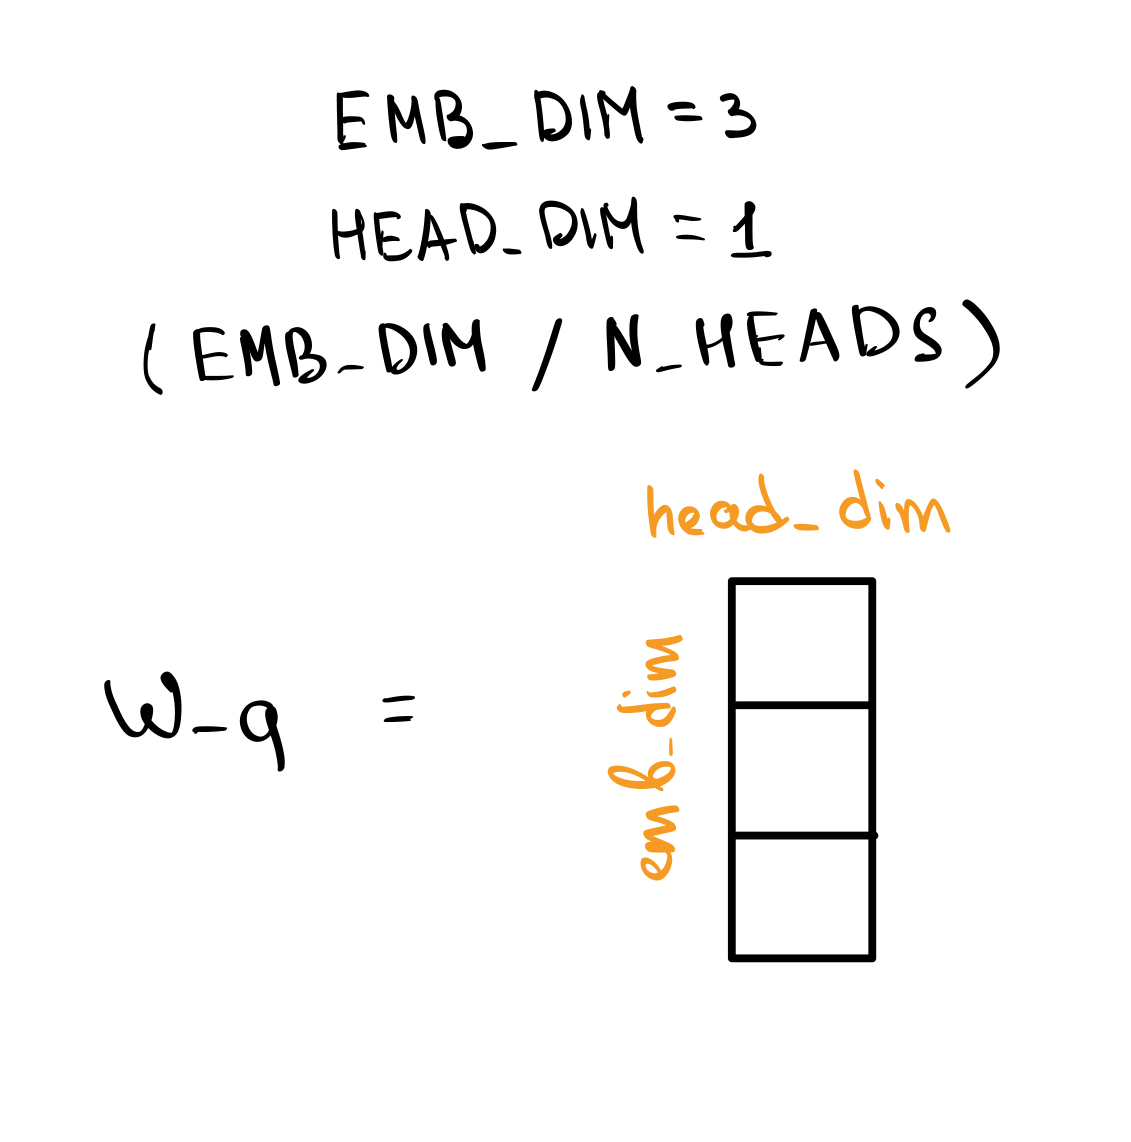 EMB_DIM = 3
HEAD_DIM = 1
(EMB_DIM / N_HEADS)
head_dim
emb_dim
W_q =